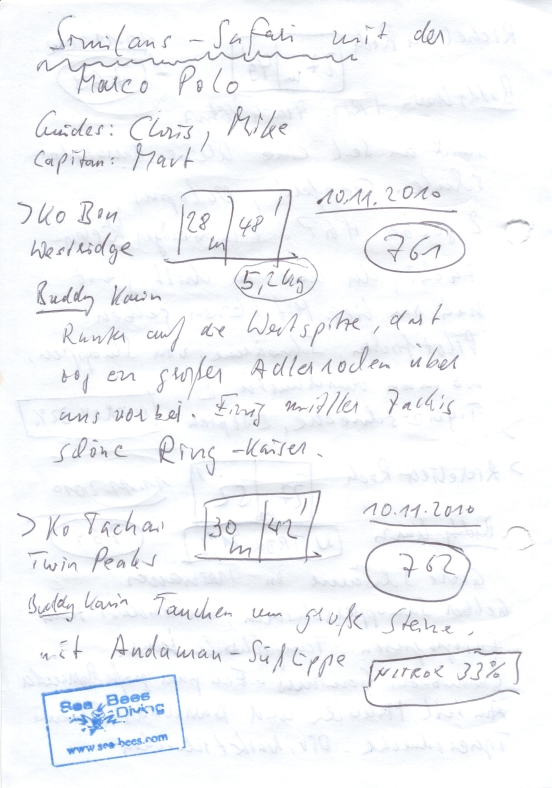 Similans - Safari mit der
Marco Polo
Guides: Chris, Mike
Capitan: Mart
>Ko Bon
Westridge
28 m 48'
5,2kg
10.11.2010
761
Buddy Karin
Runter auf die Westspitze, dort
zog ein großer Adlerrochen über
uns vorbei. Einig
schöne Ring-Kaiser.
>Ko Tachai
Twin Peaks
30 m 42'
10.11.2010
762
Buddy Karin Tauchen um große Steine,
mit Andaman Süßlippe
NITROX 33%
Sea Bees
Diving
www.sea-bees.com